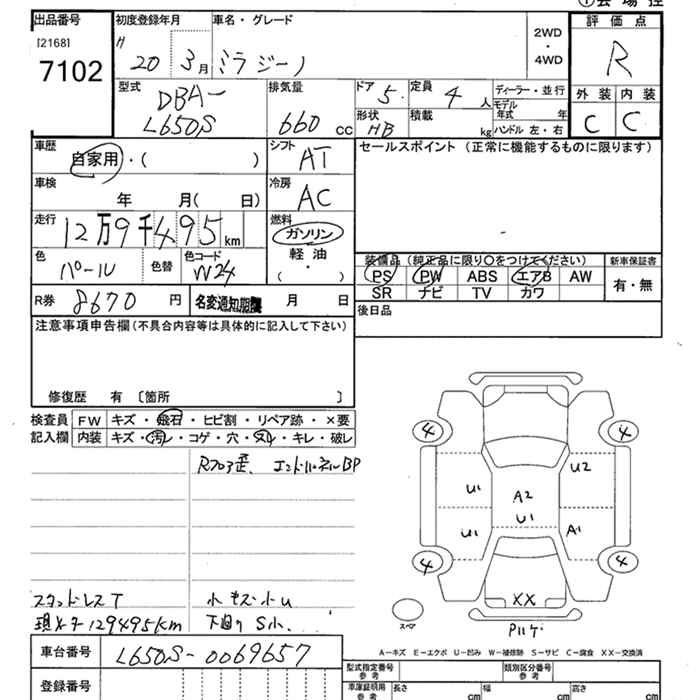 ①会場控
出品番号 初度登録年月 車名・グレード 評価点
[2168] H 2WD
7102 20 3月 ミラジーノ ・ R
4WD
型式 排気量 ドア 定員 ディーラー・並行 外装 内装
DBA- 5 4人 モデル年式 年 C C
L650S 660cc 形状 HB 積載 kg ハンドル 左・右
車歴 シフト セールスポイント (正常に機能するものに限ります)
自家用・( ) AT
車検 冷房
年 月( 日) AC
走行 燃料
12万9千495km ガソリン
色 色替 色コード 軽油 装備品 (純正品に限り○をつけてください) 新車保証書
パール W24 ( ・ ) PS PW ABS エアB AW 有・無
SR ナビ TV カワ
R券 8670円 名変通知期限 月 日 後日品
注意事項申告欄(不具合内容等は具体的に記入して下さい)
修復歴 有 〔箇所 〕
検査員 FW キズ・飛石・ヒビ割・リペア跡・×要
記入欄 内装 キズ・汚レ・コゲ・穴・スレ・キレ・破レ
Rフロア歪、エンドパネルBP
4 4
U2
U1 A2
U1
U1 A1
4 4
XX
スタッドレスT 小キズ小U
スペア Pハゲ
現メーター129495km 下廻りS小...
A-キズ E-エクボ U-凹み W-補修跡 S-サビ C-腐食 XX-交換済
車台番号 L650S-0069657
登録番号 型式指定番号 参考 類別区分番号 参考
車庫証明用 参考 長さ cm 幅 cm 高さ cm